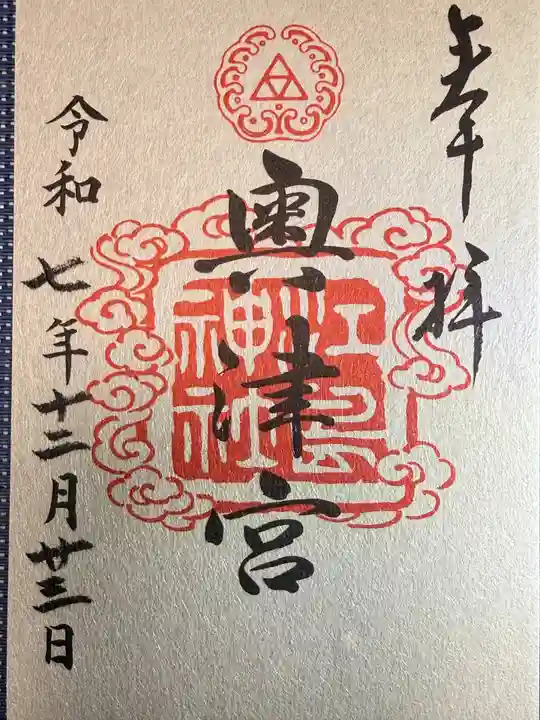 奉拝
奥津宮
江島
神社
令和七年十二月廿三日